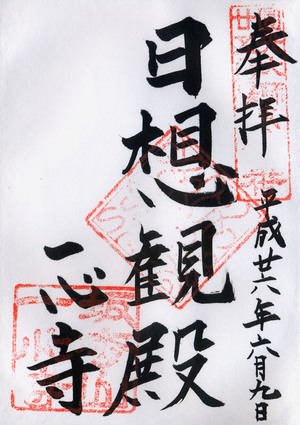 奉拝
平成廿六年六月九日
日想観殿
一心寺